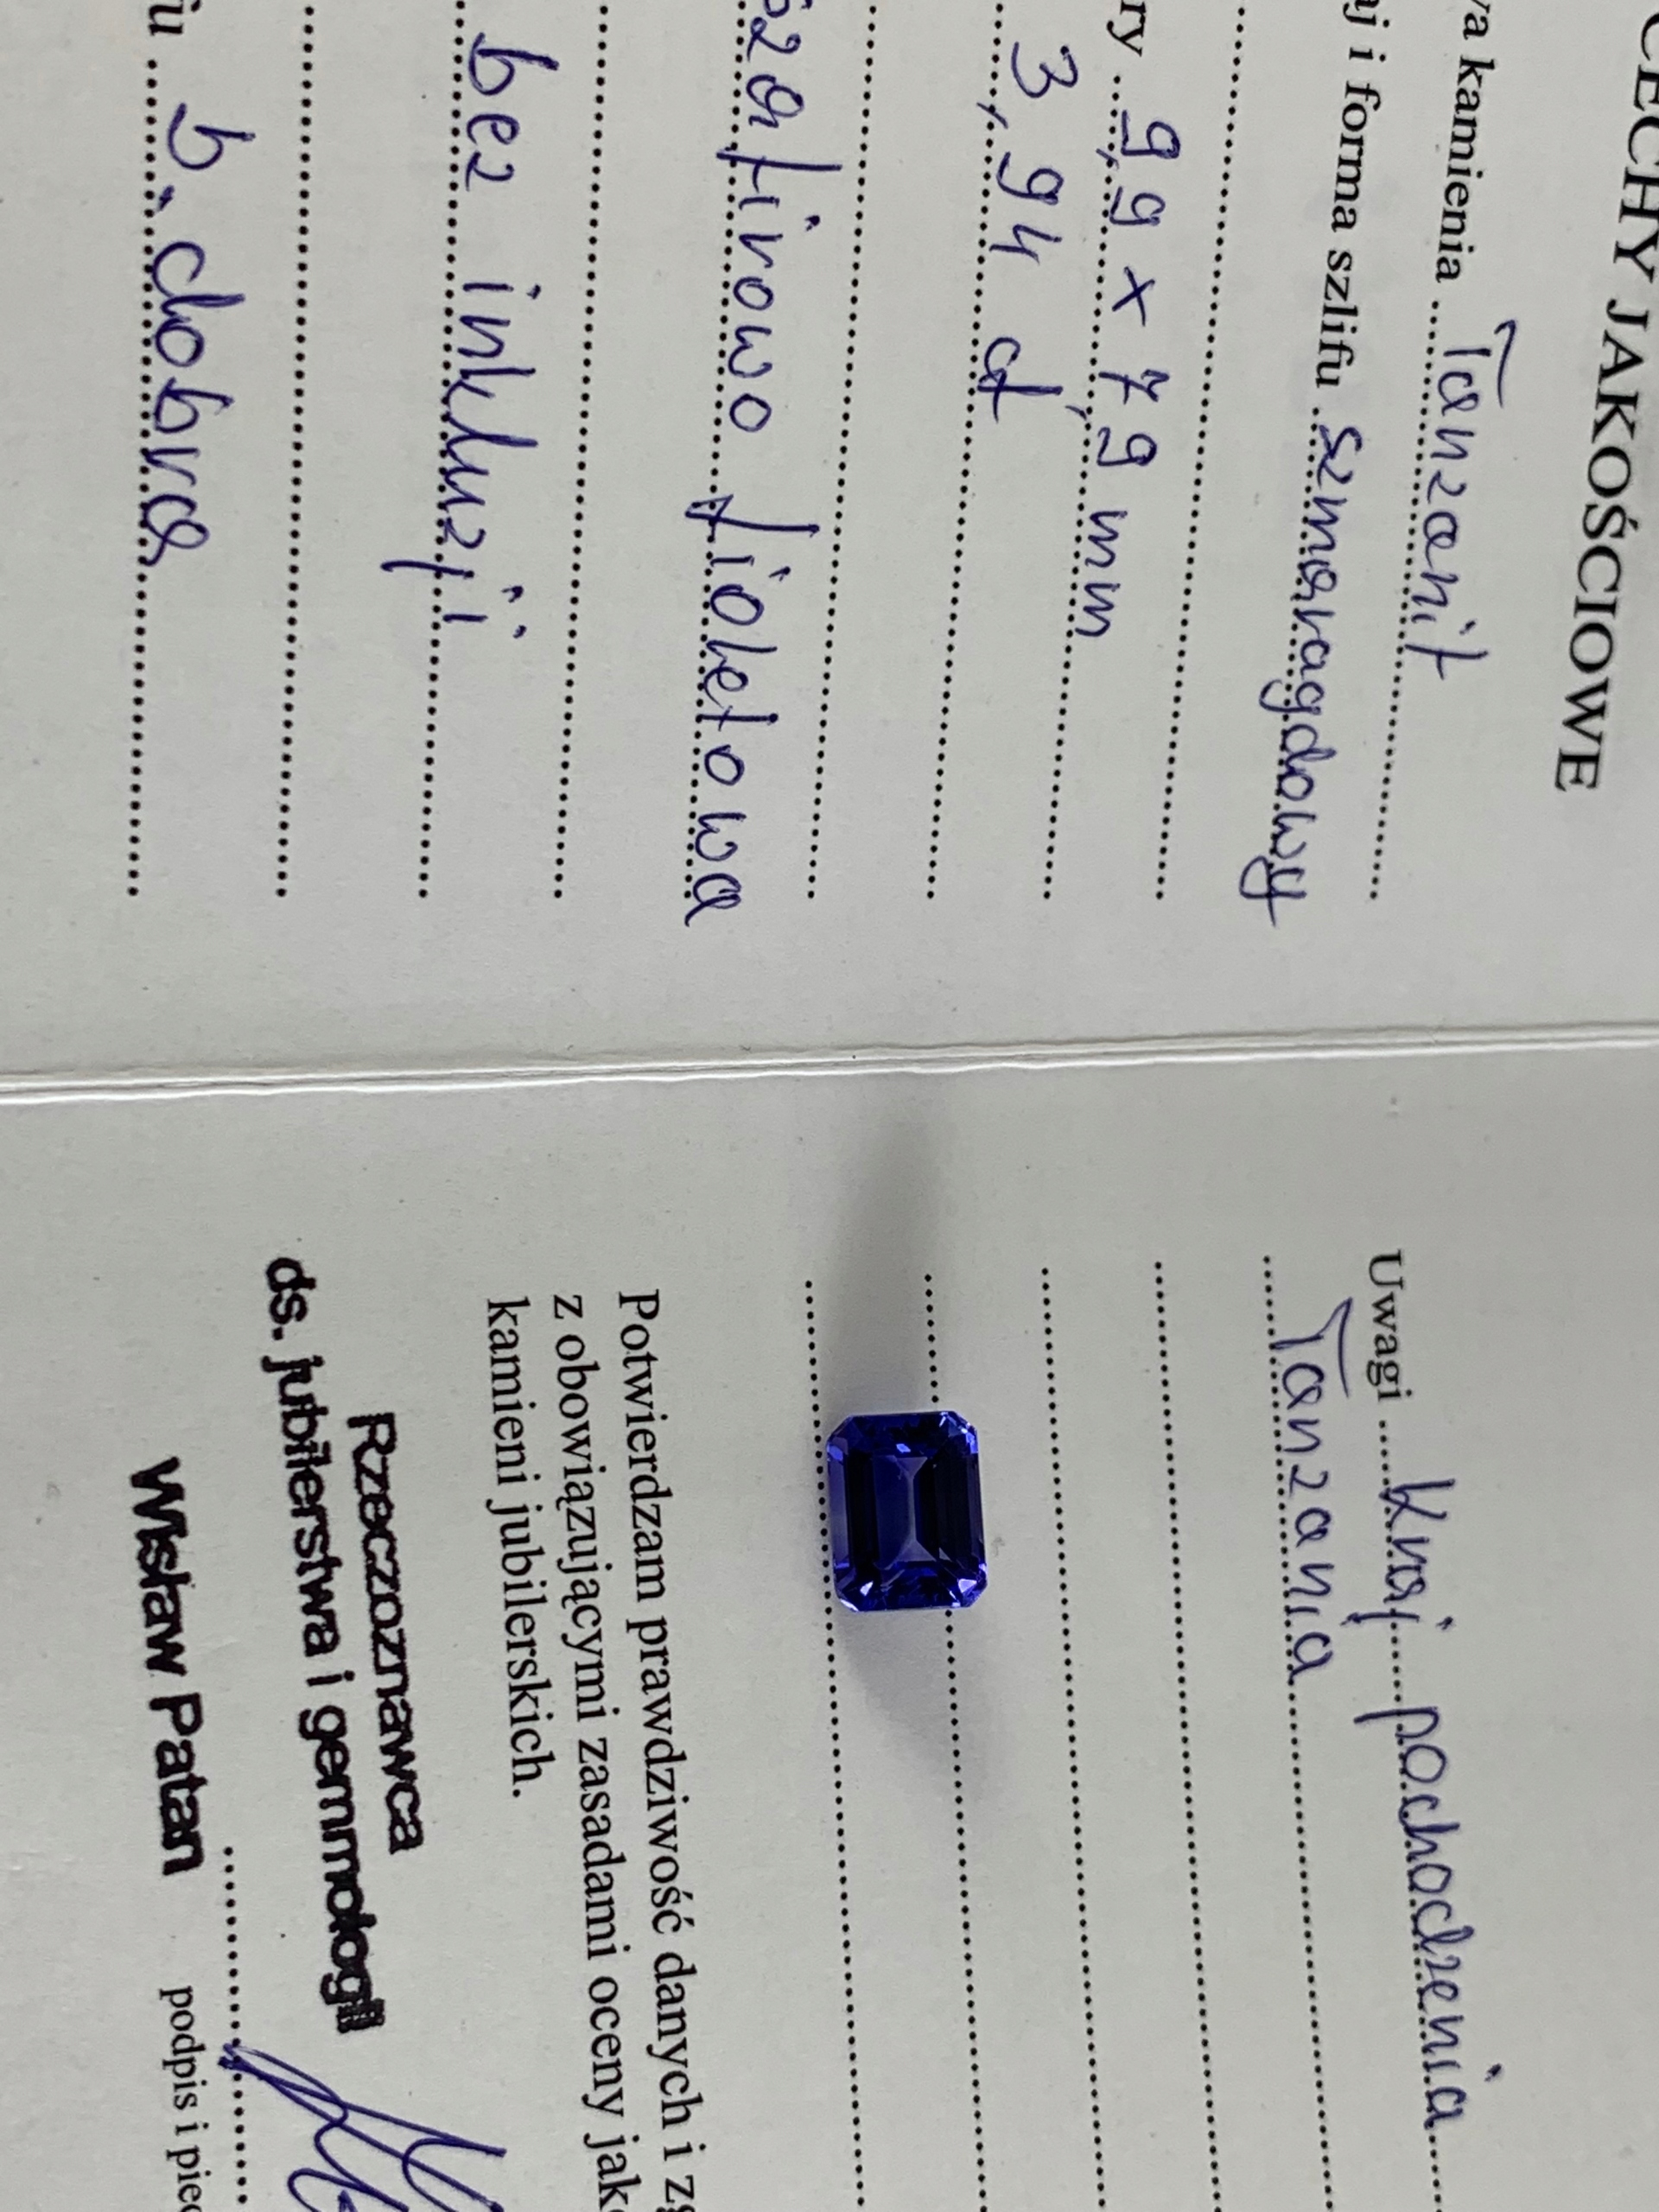 CECHY JAKOŚCIOWE
kamienia Tanzanit
i forma szlifu szmaragdowy
9,9 x 7,9 mm
3,94 ct
fioletowa
bez inkluzji
b. dobra
Uwagi Kraj pochodzenia
Tanzania
Potwierdzam prawdziwość danych i
z obowiązującymi zasadami oceny
kamieni jubilerskich.
Rzeczoznawca
ds. jubilerstwa i gemmologii
Wisław Patan
podpis i